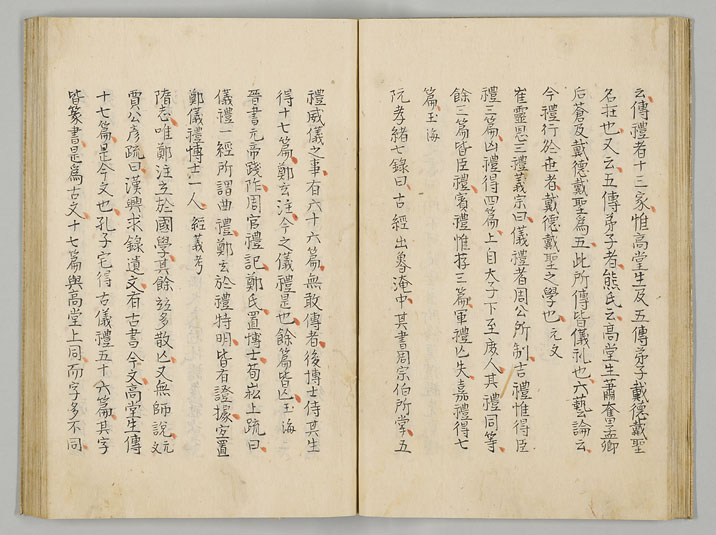 云傳禮者十三家惟高堂生及五傳弟子戴德戴聖
名在也又云五傳弟子者熊氏云高堂生蕭奮孟卿
后蒼及戴德戴聖爲五此所傳皆儀礼也六藝論云
今禮行於世者戴德戴聖之學也
崔靈恩三禮義宗曰儀禮者周公所制吉禮惟得臣
禮三篇凶禮得四篇上自天子下至庶人其禮同等
餘三篇皆臣禮賓禮惟存三篇軍禮亾失嘉禮得七
篇玉海
阮孝緒七錄曰古經出魯淹中其書周宗伯所掌五
禮威儀之事有六十六篇無敢傳者後博士侍其生
得十七篇鄭玄注今之儀禮是也餘篇皆亾玉海
晉書元帝踐阼周官禮記鄭氏置博士荀崧上疏曰
儀禮一經所謂曲禮鄭玄於禮特明皆有證據宜置
鄭儀禮博士一人 經義考
隋志唯鄭注立於國學其餘並多散亾又無師說
賈公彥疏曰漢興求錄遺文有古書今文高堂生傳
十七篇是今文也孔子宅得古儀禮五十六篇其字
皆篆書是爲古文十七篇與高堂上同而字多不同